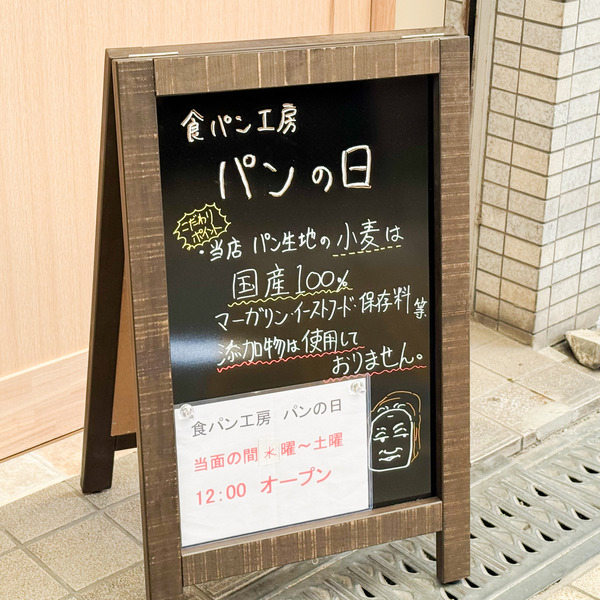 食パン工房
パンの日
こだわり
ポイント
・当店 パン生地の小麦は
国産100%
マーガリン・イーストフード・保存料等
添加物は使用して
おりません。
食パン工房 パンの日
当面の間 水曜～土曜
12:00 オープン